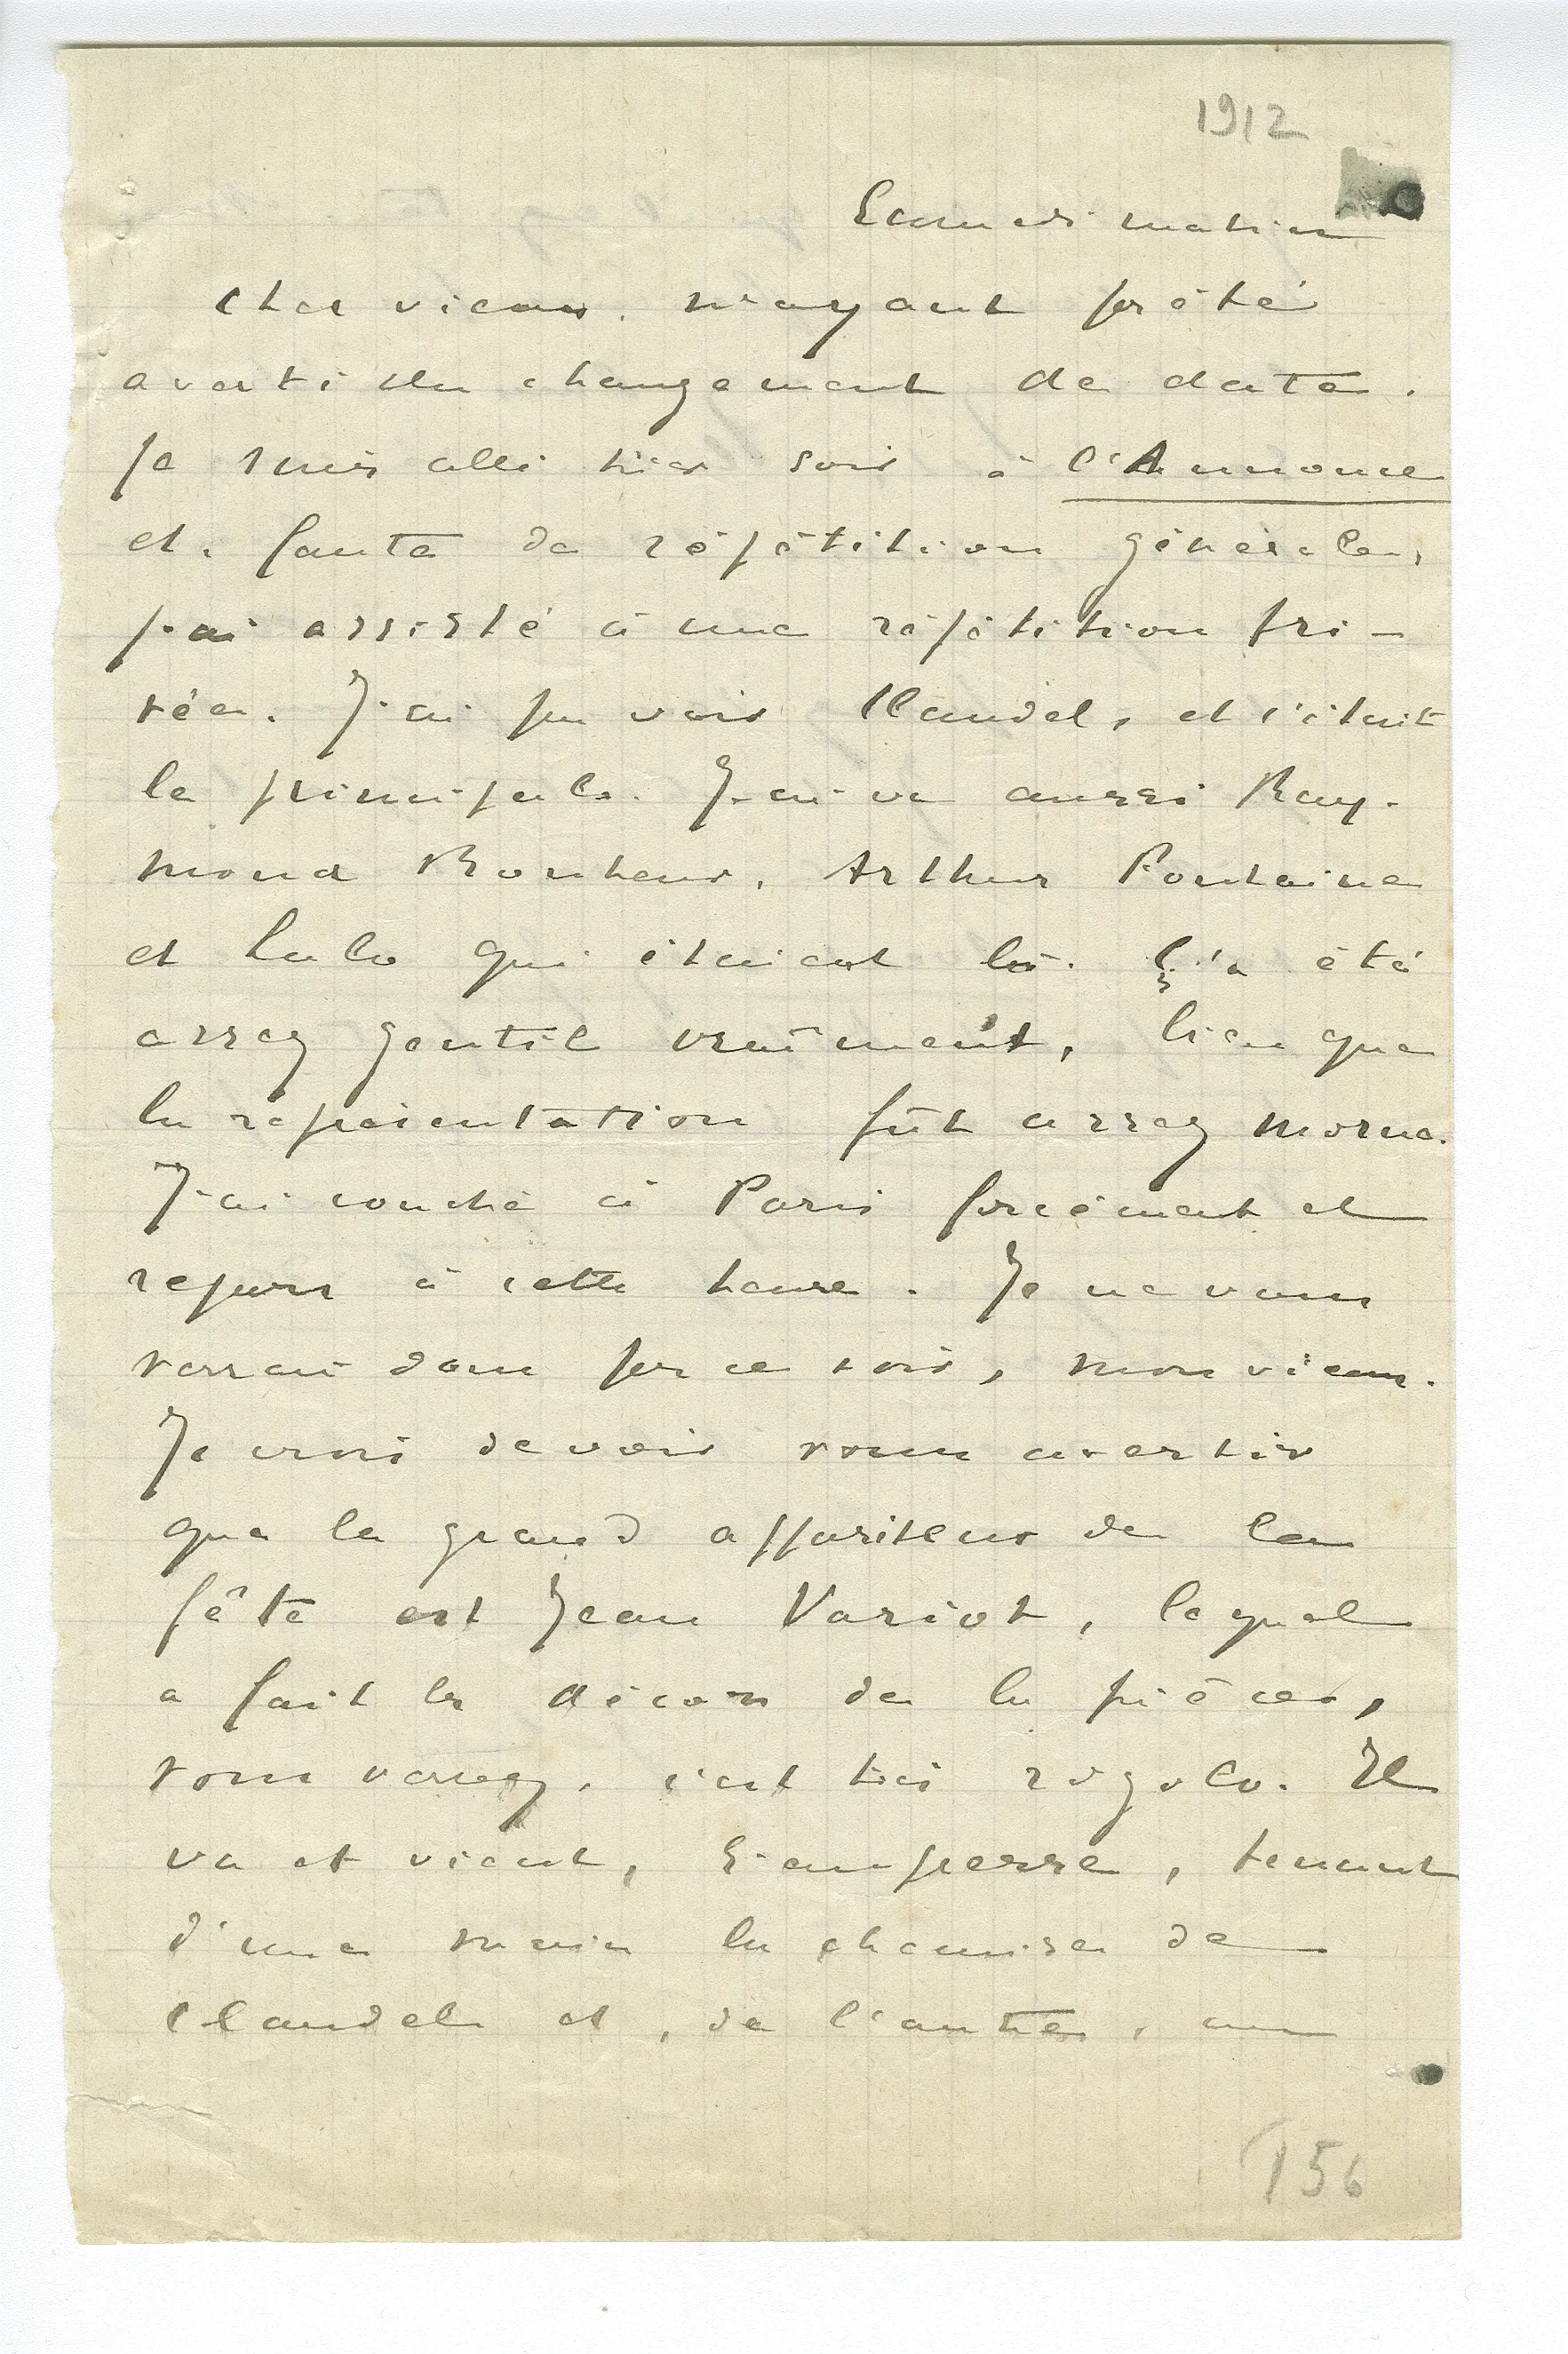 1912
Samedi matin
Cher vieux, n'ayant pas été
averti du changement de date,
je suis allé hier soir à l'Annonce
et, faute de répétition générale,
j'ai assisté à une répétition pri-
vée. J'ai pu voir Claudel, et c'était
le principal. J'ai vu aussi Ray-
mond Bonheur, Arthur Fontaine
et Lulo qui étaient là. Ç'a été
assez gentil vraiment, bien que
la représentation fût assez morne.
J'ai couché à Paris forcément et
repars à cette heure. Je ne vous
verrai donc pas ce soir, mon vieux.
Je crois devoir vous avertir
que le grand appariteur de la
fête est Jean Variot, lequel
a fait les décors de la pièce,
vous verrez, c'est très rigolo. Il
va et vient, s'empresse, tenant
d'une main la chemise de
Claudel et, de l'autre, un
156